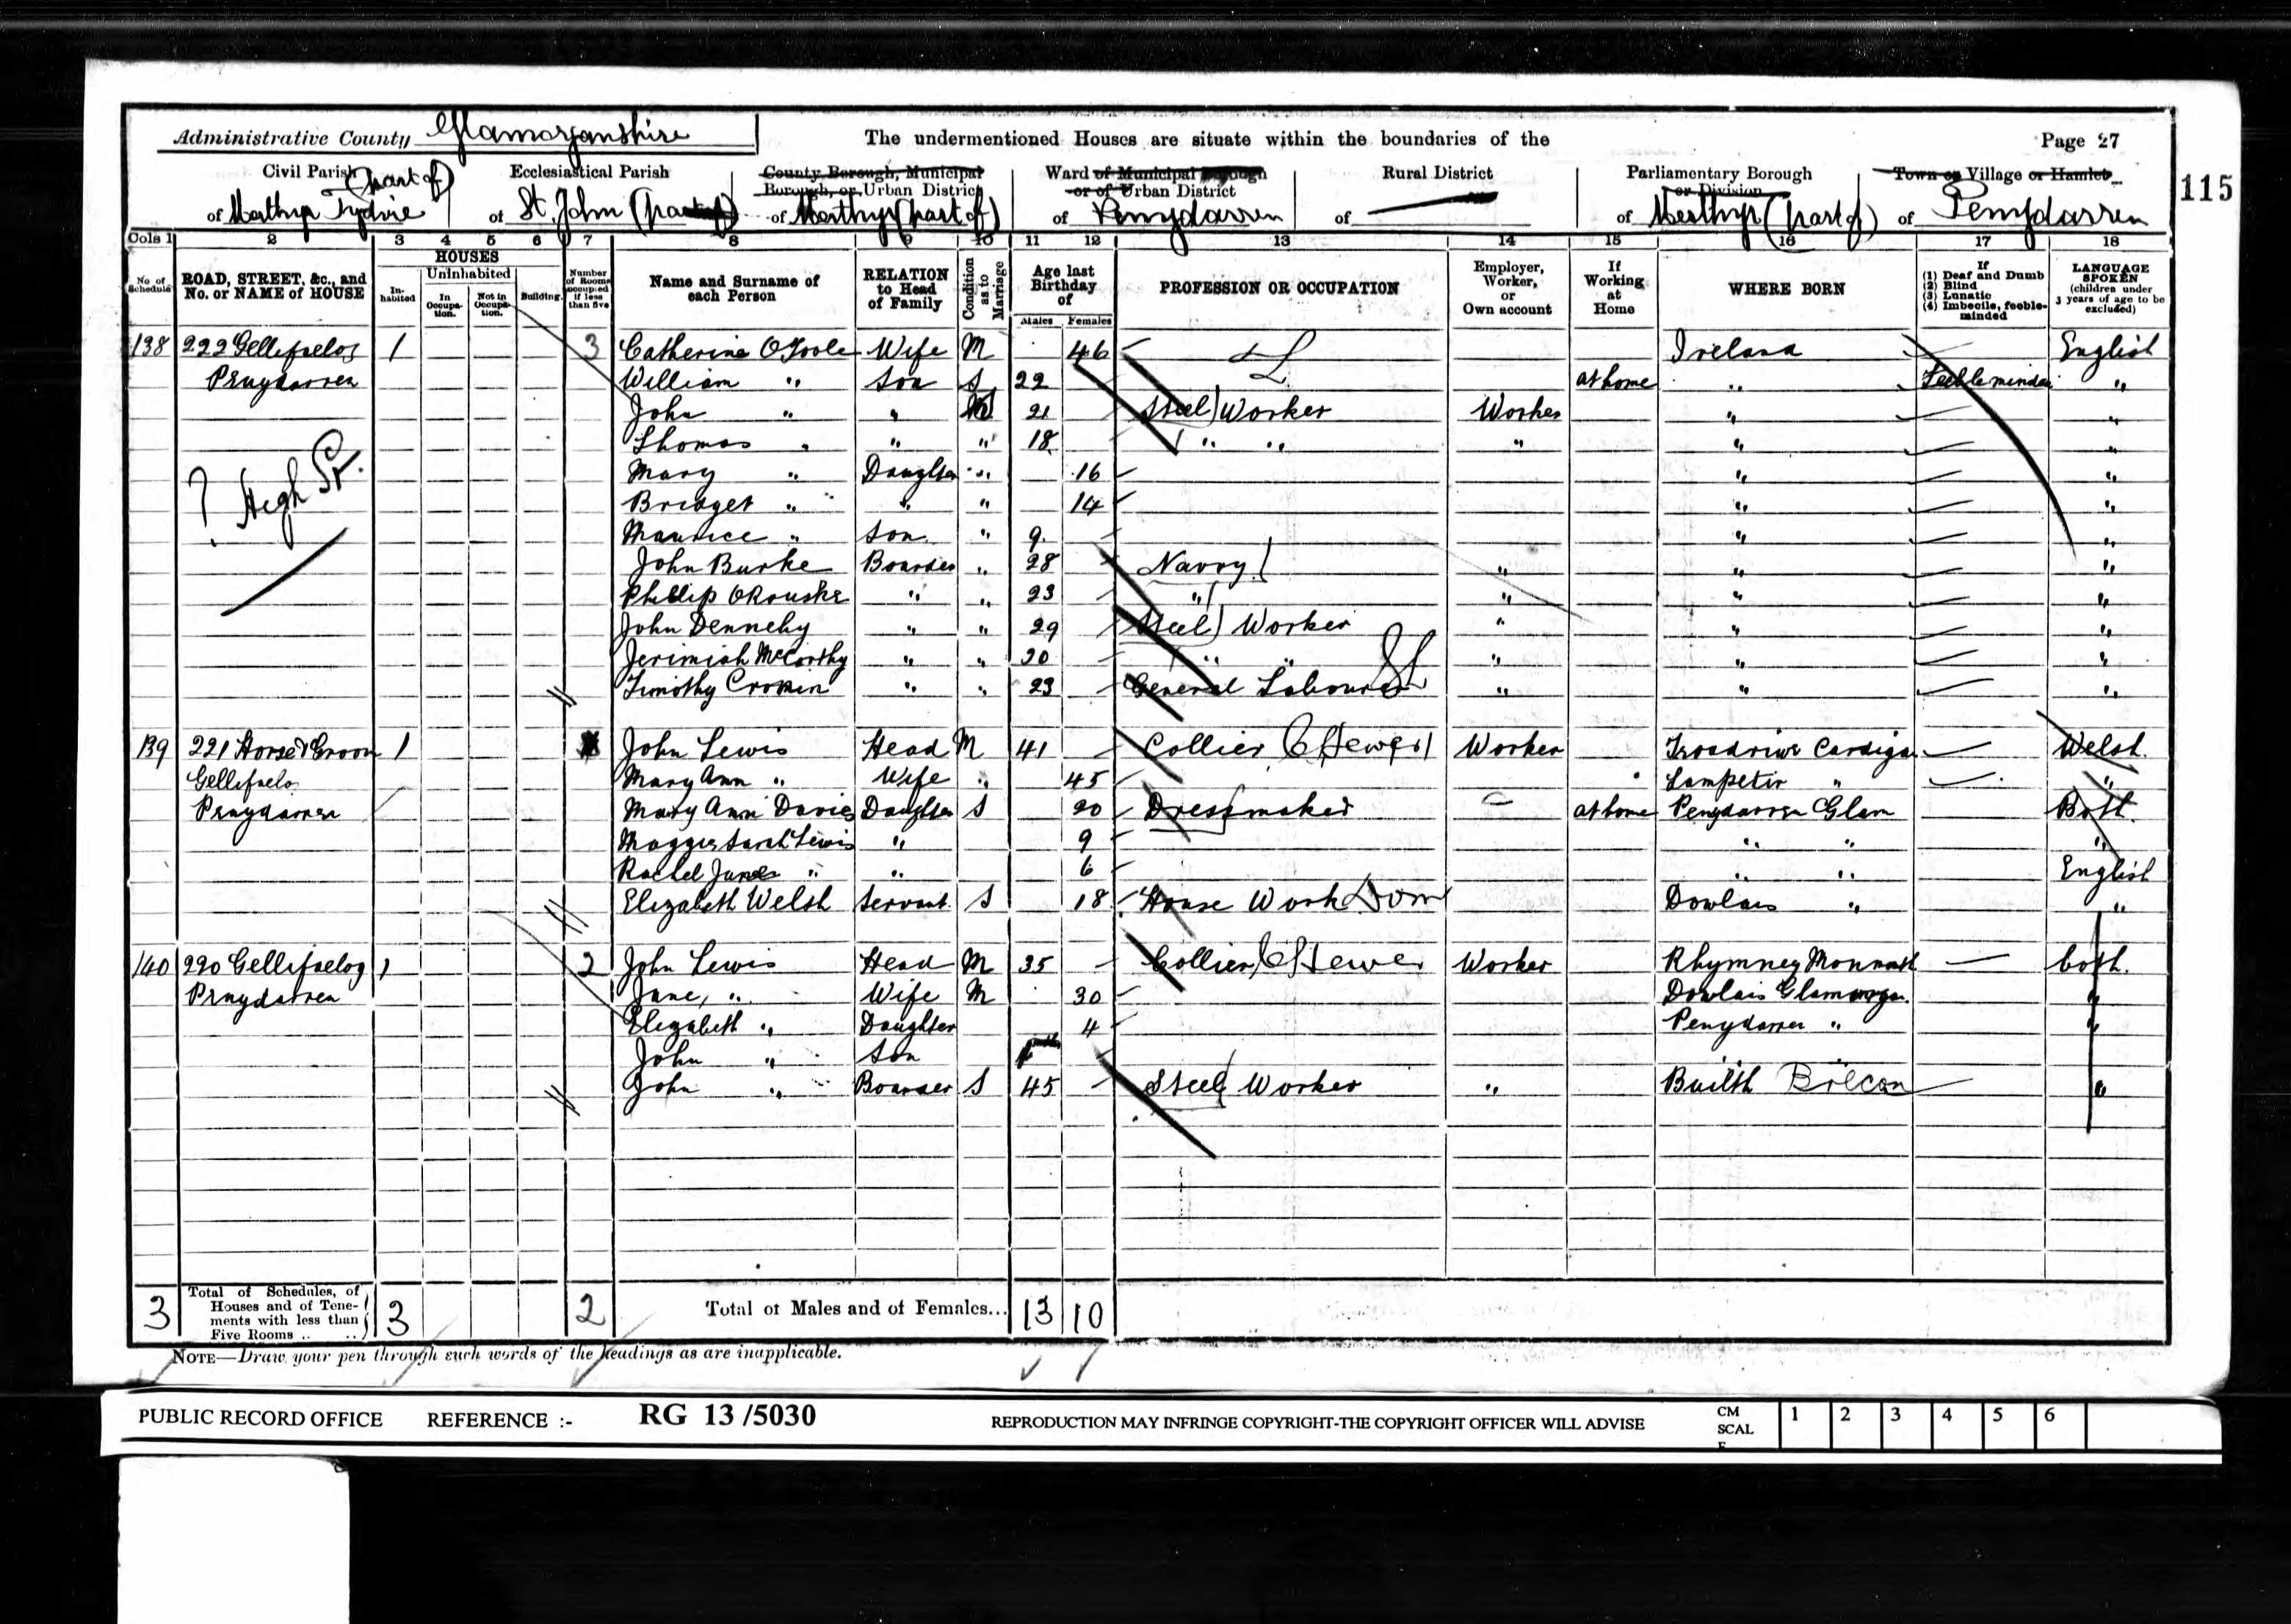 Administrative County Glamorganshire The undermentioned Houses are situate within the boundaries of the Page 27
Civil Parish (part of) Ecclesiastical Parish County Borough, Municipal Borough, or Urban District Ward of Municipal Borough or of Urban District Rural District Parliamentary Borough or Division Town or Village or Hamlet
of Merthyr Tydvil of St. John (part of) of Merthyr (part of) of Penydarren of of Merthyr (part of) of Penydarren 115
Cols 1 2 3 4 5 6 7 8 9 10 11 12 13 14 15 16 17 18
No. of Schedule ROAD, STREET, &c., and No. or NAME of HOUSE HOUSES Inhabited Uninhabited In Occupation. Not in Occupation. Building. Number of Rooms occupied if less than five Name and Surname of each Person RELATION to Head of Family Condition as to Marriage Age last Birthday of Males Females PROFESSION OR OCCUPATION Employer, Worker, or Own account If Working at Home WHERE BORN If (1) Deaf and Dumb (2) Blind (3) Lunatic (4) Imbecile, feeble-minded LANGUAGE SPOKEN (children under 3 years of age to be excluded)
138 222 Gellifaelog 1 3 Catherine O'Toole Wife M 46 Ireland English
Penydarren William " Son S 22 at home " Feeble minded "
John " " 21 Steel Worker Worker " "
Thomas " " " 18 " " " " "
Mary " Daughter " 16 " "
? High St. Bridget " " " 14 " "
Maurice " Son " 9 " "
John Burke Boarder " 28 Navvy " " "
Phillip O'Rourke " " 23 " " " "
John Dennehy " " 29 Steel Worker " " "
Jerimiah McCarthy " " 20 " " " " "
Timothy " " 23 General Labourer " " "
139 221 Horse & Groom 1 John Lewis Head M 41 Collier Hewer Worker Cardigan Welsh
Mary Ann " Wife " 45 Lampeter " "
Penydarren Mary Ann Davies Daughter S 20 Dressmaker at home Penydarren Glam Both
Maggie Sarah Lewis " 9 " " "
Rachel " " 6 " " English
Elizabeth Welsh Servant S 18 House Work Dom Dowlais " "
140 220 Gellifaelog 1 2 John Lewis Head M 35 Collier Hewer Worker Rhymney Monmouth both
Penydarren Jane " Wife M 30 Dowlais Glamorgan "
Elizabeth " Daughter 4 Penydarren " "
John " Son
John " Boarder S 45 Steel Worker " Builth Brecon "
3 Total of Schedules, of Houses and of Tenements with less than Five Rooms .. .. 3 2 Total of Males and of Females... 13 10
NOTE—Draw your pen through such words of the headings as are inapplicable.
PUBLIC RECORD OFFICE REFERENCE :- RG 13 /5030 REPRODUCTION MAY INFRINGE COPYRIGHT-THE COPYRIGHT OFFICER WILL ADVISE CM SCALE 1 2 3 4 5 6